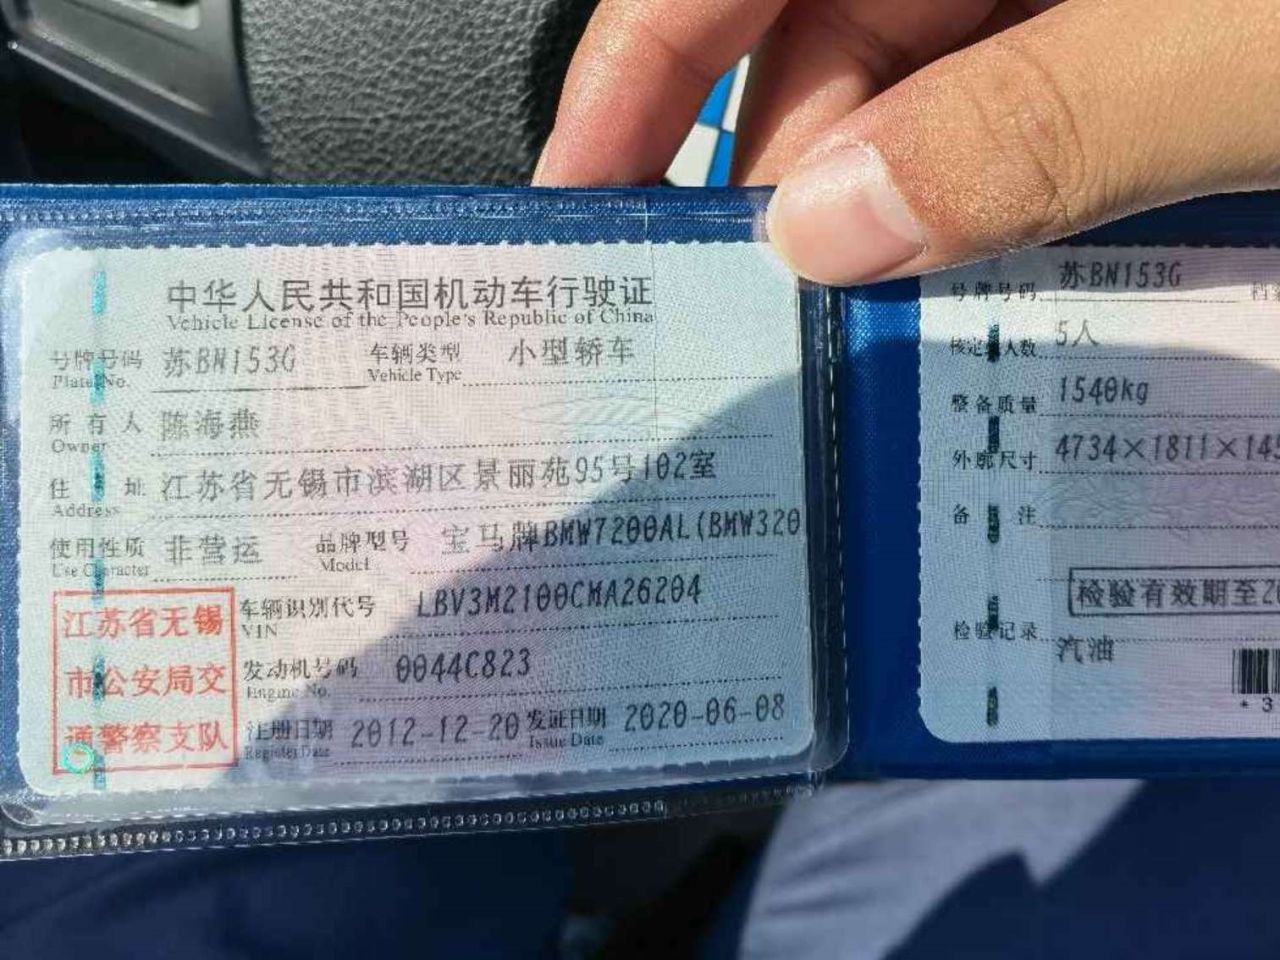 中华人民共和国机动车行驶证
Vehicle License of the People's Republic of China
号牌号码 苏BN153G 车辆类型 小型轿车
Plate No. Vehicle Type
所有人 陈海燕
Owner
住址 江苏省无锡市滨湖区景丽苑95号102室
Address
使用性质 非营运 品牌型号 宝马牌BMW7200AL(BMW320
Use Character Model
江苏省无锡
市公安局交
通警察支队
车辆识别代号 LBV3M2100CMA26204
VIN
发动机号码 0044C823
Engine No.
注册日期 2012-12-20 发证日期 2020-06-08
Register Date Issue Date
号牌号码 苏BN153G
核定载人数 5人
整备质量 1540kg
外廓尺寸 4734×1811×145
备注
检验有效期至20
检验记录
汽油
*3